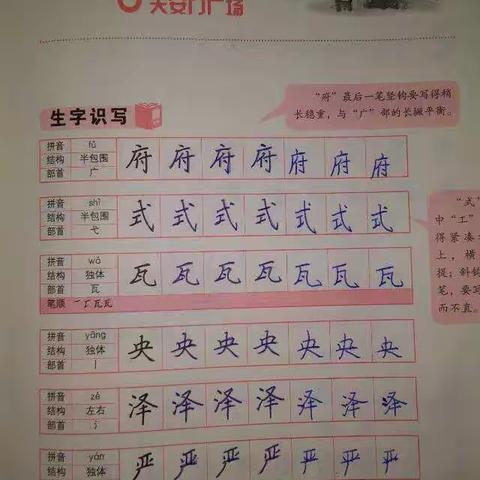 天安门广场
生字识写
“府”最后一笔竖钩要写得稍
长稳重，与“广”部的长撇平衡。
拼音 fǔ
结构 半包围
部首 广
府 府 府 府 府 府 府
拼音 shì
结构 半包围
部首 弋
式 式 式 式 式 式 式
“式”
中“工”
得紧凑
上，横
提；斜钩
笔，要写
而不直。
拼音 wǎ
结构 独体
部首 瓦
笔顺
瓦 瓦 瓦 瓦 瓦 瓦 瓦
拼音 yāng
结构 独体
部首 丨
央 央 央 央 央 央 央
拼音 zé
结构 左右
部首 氵
泽 泽 泽 泽 泽 泽 泽
拼音 yán
结构 独体
严 严 严 严 严 严 严